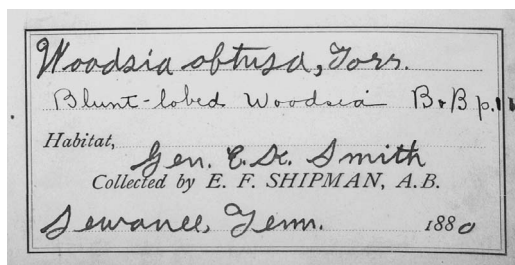 Woodsia obtusa, Torr.
Blunt-lobed Woodsia B&B p.
Habitat,
Gen. E. K. Smith
Collected by E. F. SHIPMAN, A.B.
Sewanee, Tenn. 1880